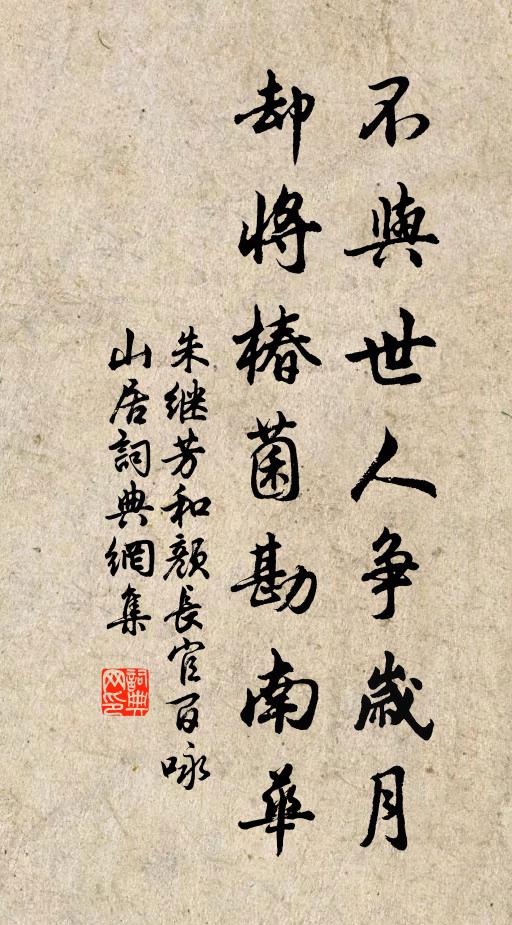 不與世人争歲月
却將椿菌勘南華
朱继芳和顏長官百咏
山居詞典網集
詞典网印